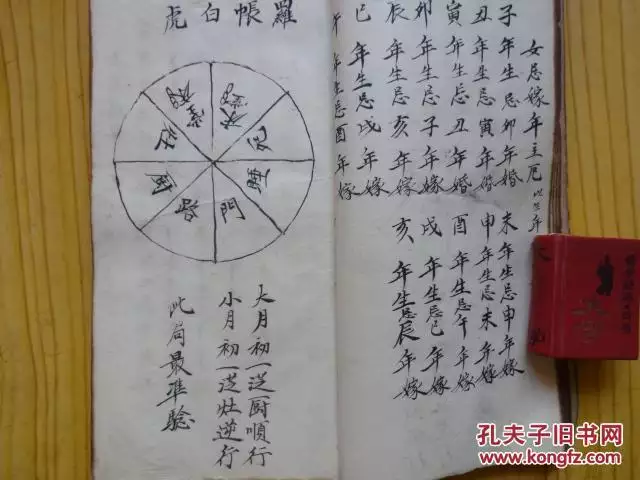 女忌嫁年主厄
子年生忌卯年婚
丑年生忌寅年婚
寅年生忌丑年婚
卯年生忌子年嫁
辰年生忌亥年嫁
巳年生忌戌年嫁
午年生忌酉年嫁
未年生忌申年嫁
申年生忌未年嫁
酉年生忌午年嫁
戌年生忌巳年嫁
亥年生忌辰年嫁
羅帳白虎
堂
灶
門
路
睡
大月初一从厨順行
小月初一从灶逆行
此局最準驗
孔夫子旧书网
www.kongfz.com